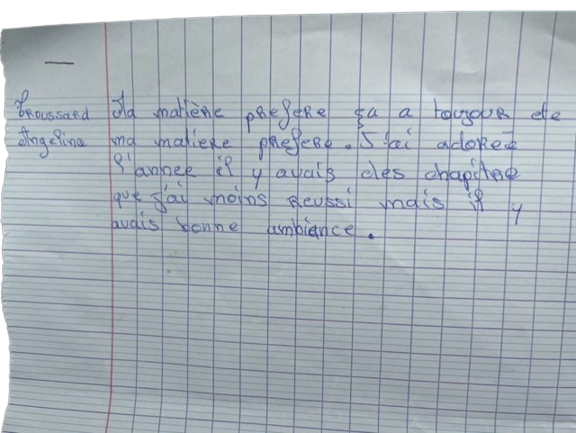 Troussard
Angelina
Ma matière prefere ça a toujour ete
ma matiere prefere. J'ai adoree
l'annee il y avais des chapitre
que j'ai moins reussi mais il y
avais bonne ambiance.